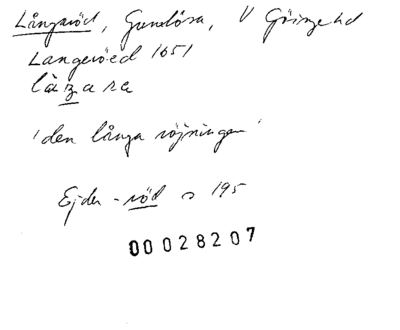 Långaröd, Gumlösa, V Göinge hd
Langeröed 1651
låz̲ara
'den långa röjningen'
Ejder - röd s 195
00028207